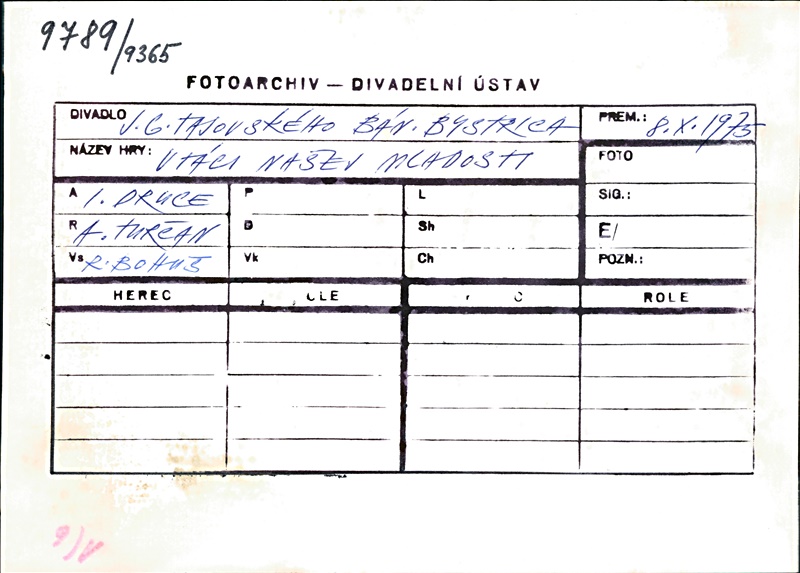 9789/9365
FOTOARCHIV — DIVADELNÍ ÚSTAV
DIVADLO J.G.TAJOVSKÉHO BÁN. BYSTRICA
PREM.: 8.X.1975
NÁZEV HRY: VTÁCI NAŠEJ MLADOSTI
FOTO
A I. DRUCE
P
L
SIG.:
R A. TURČAN
D
Sh
E/
Vs R. BOHUŠ
Vk
Ch
POZN.:
HEREC
ROLE